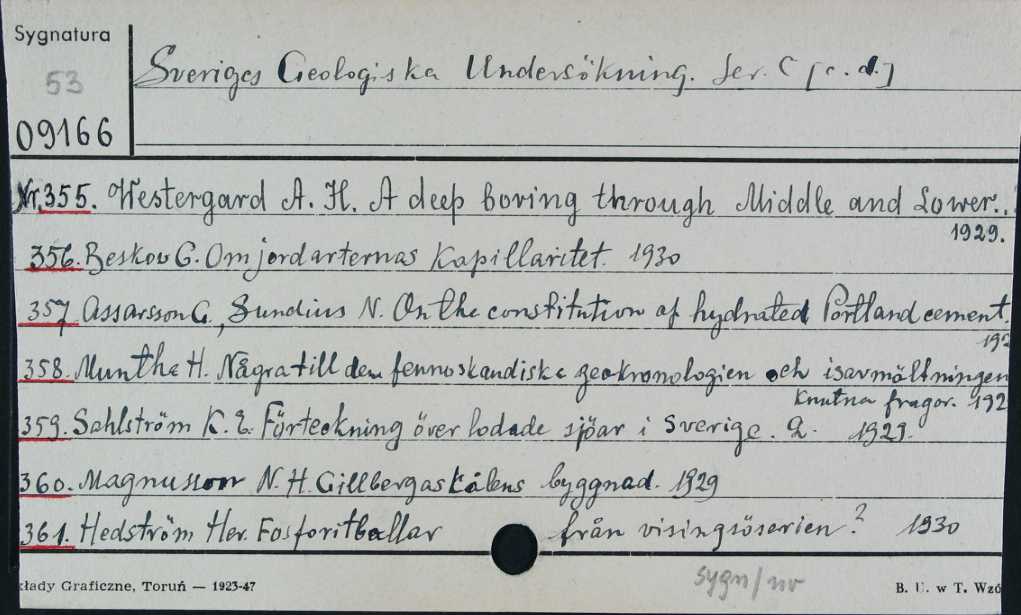 Sygnatura
53
09166
Sveriges Geologiska Undersökning. Ser. C [c. d.]
Nr. 355. Westergard A. H. A deep boring through Middle and Lower..
1929.
356. Beskow G. Om jordarternas Kapillaritet. 1930
357 Assarsson G., Sundius N. On the constitution of hydrated Portland cement.
192
358. Munthe H. Några till den fennoskandiske geokronologien och isavmältningen
Knutna fragor. 192
359. Sahlström K. E. Förteckning över lodade sjöar i Sverige. 2. 1929.
360. Magnusson N. H. Gillbergaskålens byggnad. 1929
361. Hedström Her. Fosforitbollar från visingsöserien? 1930
kłady Graficzne, Toruń — 1923-47
sygn/nv
B. U. w T. Wzó